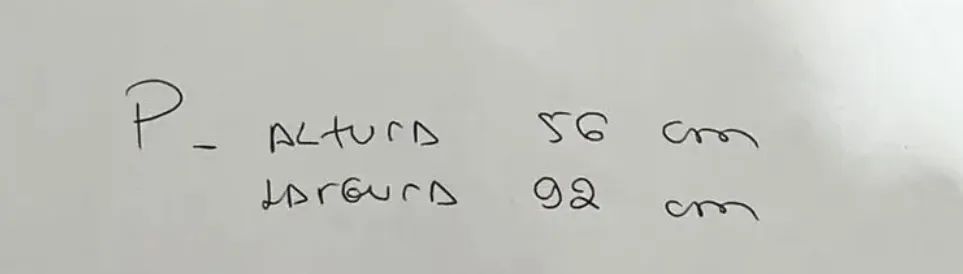 P - ALTURA 56 cm
LARGURA 92 cm